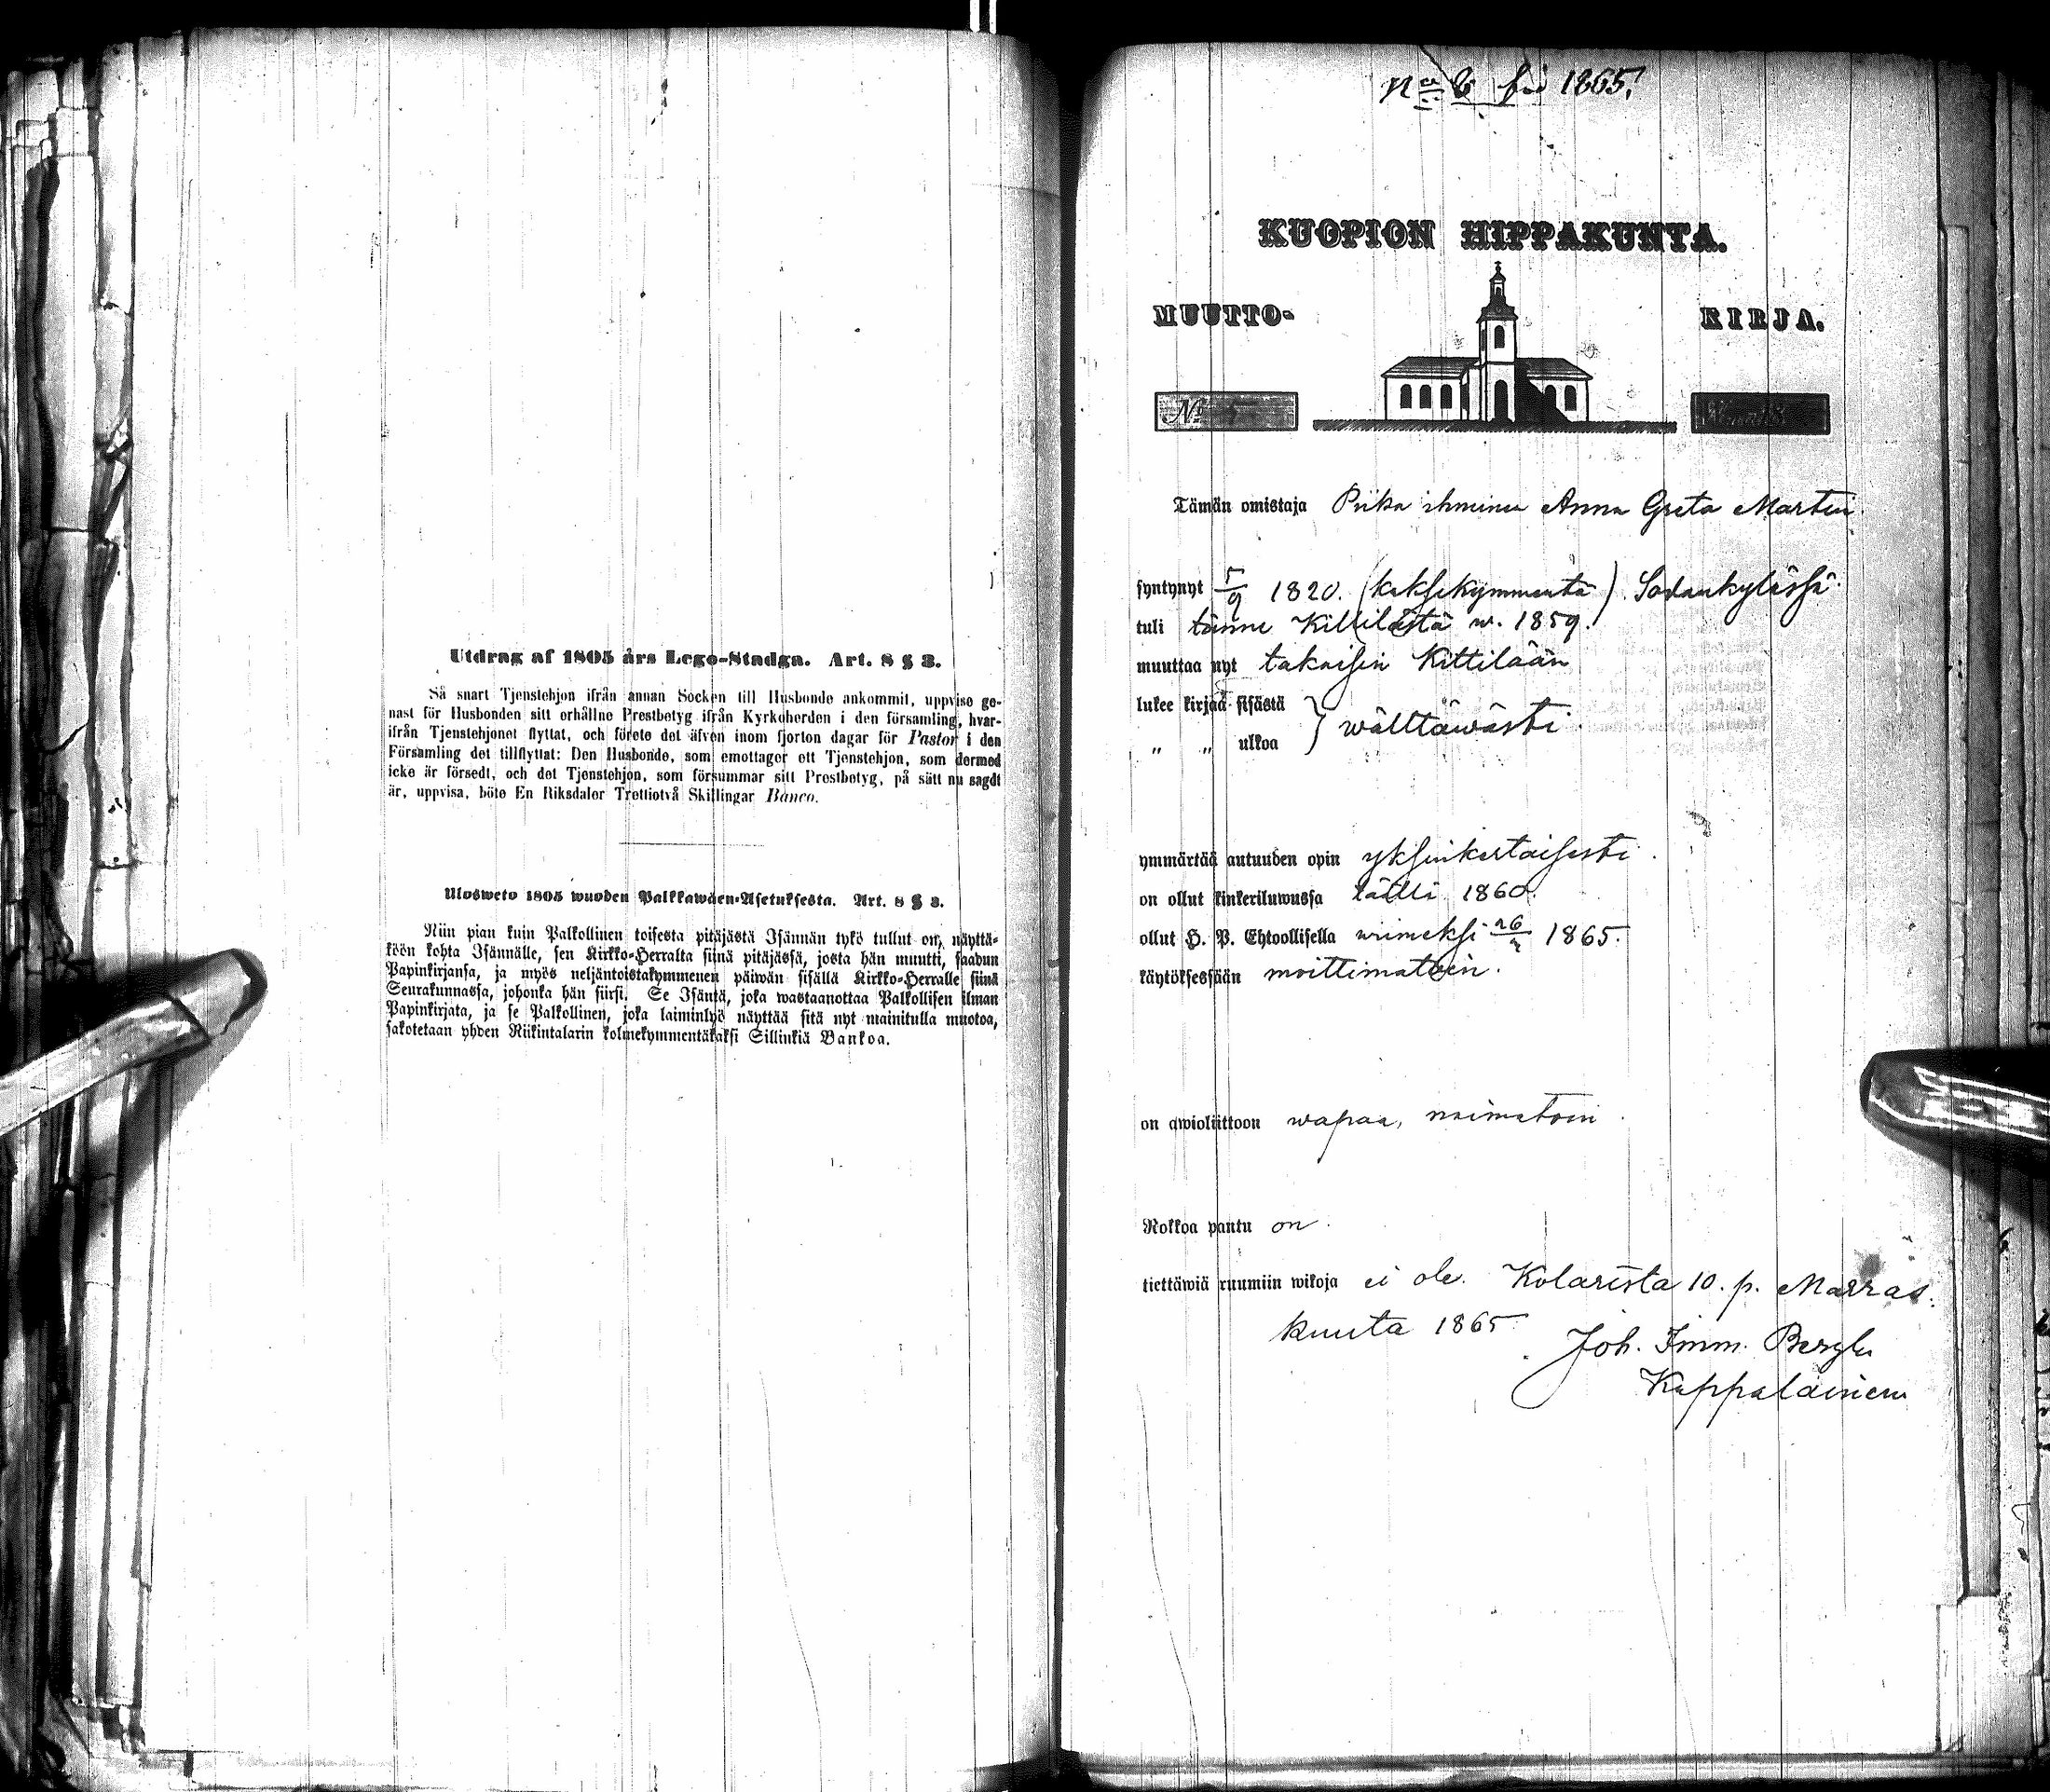 Utdrag af 1805 års Lego-Stadga. Art. 8 § 3.
Så snart Tjenstehjon ifrån annan Socken till Husbonde ankommit, uppvise ge-
nast för Husbonden sitt erhållne Prestbetyg ifrån Kyrkoherden i den församling, hvar-
ifrån Tjenstehjonet flyttat, och förete det äfven inom fjorton dagar för Pastor i den
Församling det tillflyttat: Den Husbonde, som emottager ett Tjenstehjon, som dermed
icke är försedt, och det Tjenstehjon, som försummar sitt Prestbetyg, på sätt nu sagdt
är, uppvisa, böte En Riksdaler Trettiotvå Skillingar Banco.
Ulosweto 1805 wuoden Palkkawäen-Asetuksesta. Art. 8 § 3.
Niin pian kuin Palkollinen toisesta pitäjästä Isännän tykö tullut on, näyttä-
köön kohta Isännälle, sen Kirkko-Herralta siinä pitäjässä, josta hän muutti, saadun
Papinkirjansa, ja myös neljäntoistakymmenen päiwän sisällä Kirkko-Herralle siinä
Seurakunnassa, johonka hän siirsi. Se Isäntä, joka wastaanottaa Palkollisen ilman
Papinkirjata, ja se Palkollinen, joka laiminlyö näyttää sitä nyt mainitulla muotoa,
sakotetaan yhden Riikintalarin kolmekymmentäkaksi Sillinkiä Bankoa.
1865.
KUOPION HIPPAKUNTA.
MUUTTO- KIRJA.
No 5
Tämän omistaja Piika ihminen Anna Greta Martin
syntynyt 5/9 1820. (kaksikymmentä) Sodankylässä.
tuli tänne Kittilästä w. 1859.
muuttaa nyt takaisin Kittilään
lukee kirjaa sisästä
„ „ ulkoa } wälttäwästi
ymmärtää autuuden opin yksinkertaisesti.
on ollut kinkeriluwussa täällä 1860.
ollut H. P. Ehtoollisella wiimeksi 1865.
käytöksessään moittimatoin.
on awioliittoon wapaa, naimatoin.
Rokkoa pantu on.
tiettäwiä ruumiin wikoja ei ole. Kolarista 10. p. Marras-
kuuta 1865
Joh. Imm. Bergh
Kappalainen